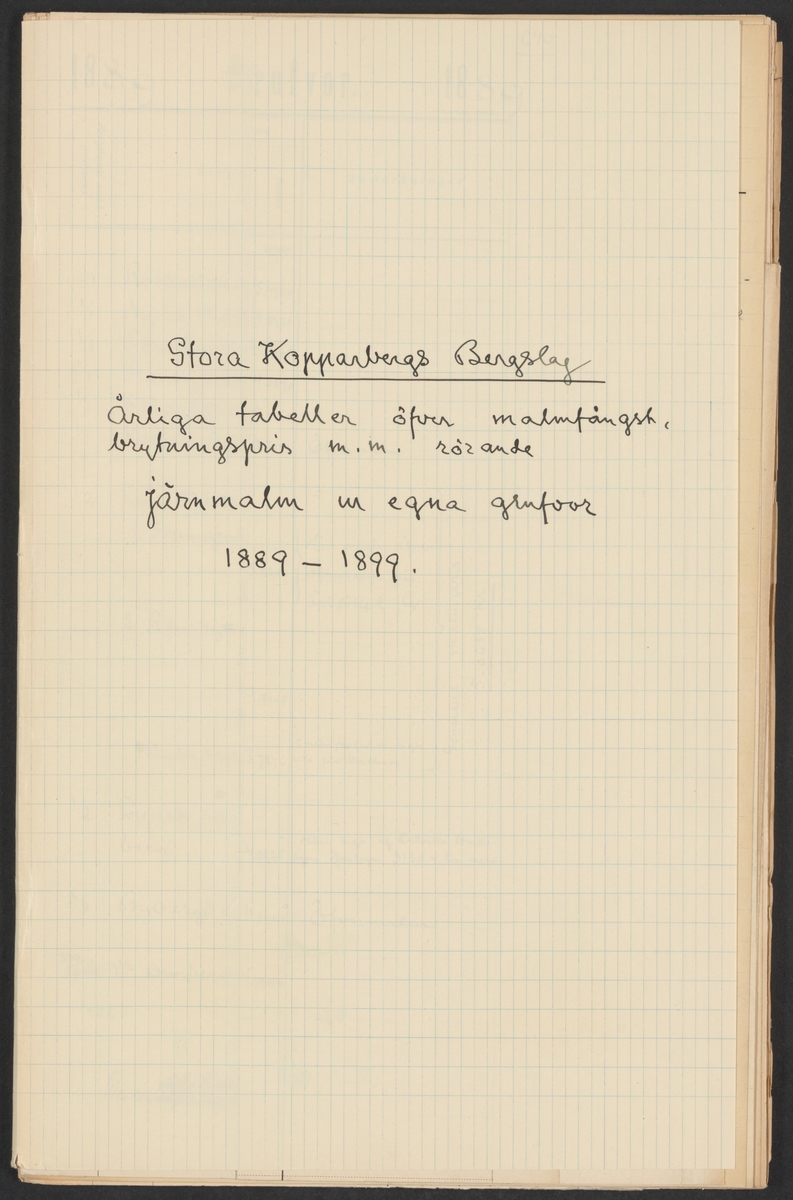 Stora Kopparbergs Bergslag
Årliga tabeller öfver malmfångst,
brytningspris m.m. rörande
järnmalm ur egna grufvor
1889 – 1899.